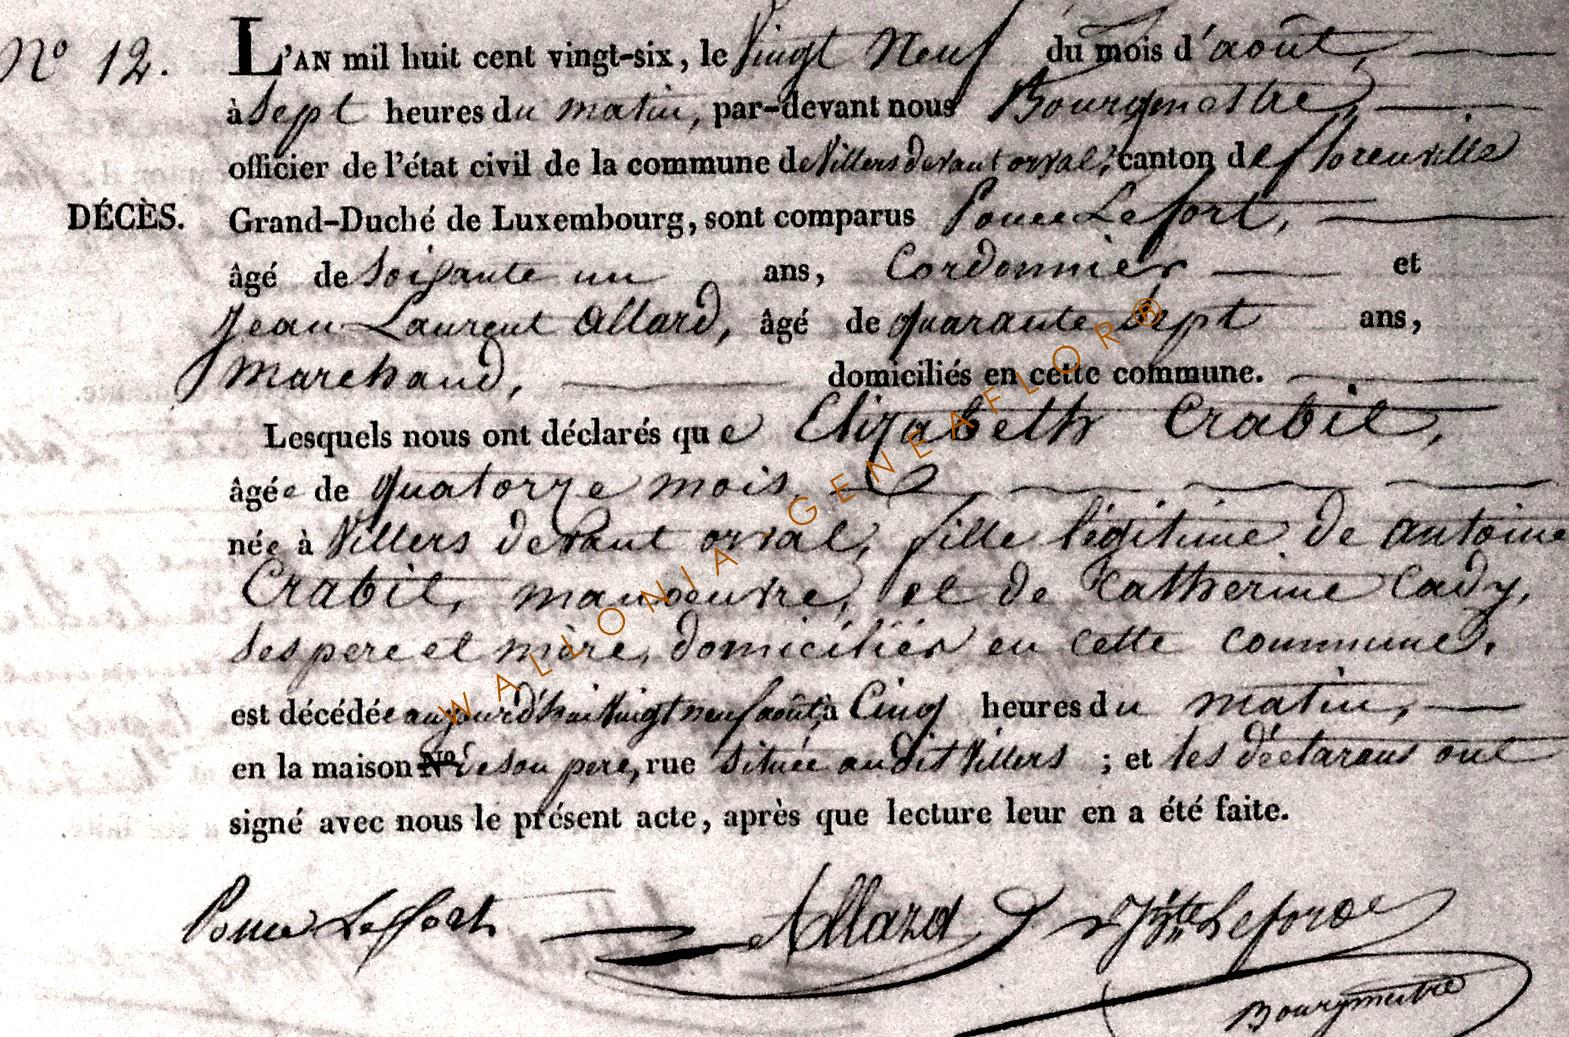 No 12.
L'AN mil huit cent vingt-six, le Vingt Neuf du mois d'août,
à Sept heures du matin, par-devant nous Bourgmestre,
officier de l'état civil de la commune de Villers devant orval, canton de florenville
DÉCÈS. Grand-Duché de Luxembourg, sont comparus Ponce Lefort,
âgé de Soixante un ans, Cordonnier et
Jean Laurent Allard, âgé de quarante Sept ans,
Marchand, domiciliés en cette commune.
Lesquels nous ont déclarés que Elizabeth Crabit,
âgée de quatorze mois
née à Villers devant orval, fille légitime de antoine
Crabit, manoeuvre, et de Catherine Cady,
Ses pere et mère, domiciliés en cette commune.
est décédée aujourd'hui Vingt neuf août à Cinq heures du matin,
en la maison No. de son pere, rue Située audit Villers ; et les déclarans ont
signé avec nous le présent acte, après que lecture leur en a été faite.
Ponce Leffort Allard
Bourgmestre
WALLONIA-GENEAFLOR®